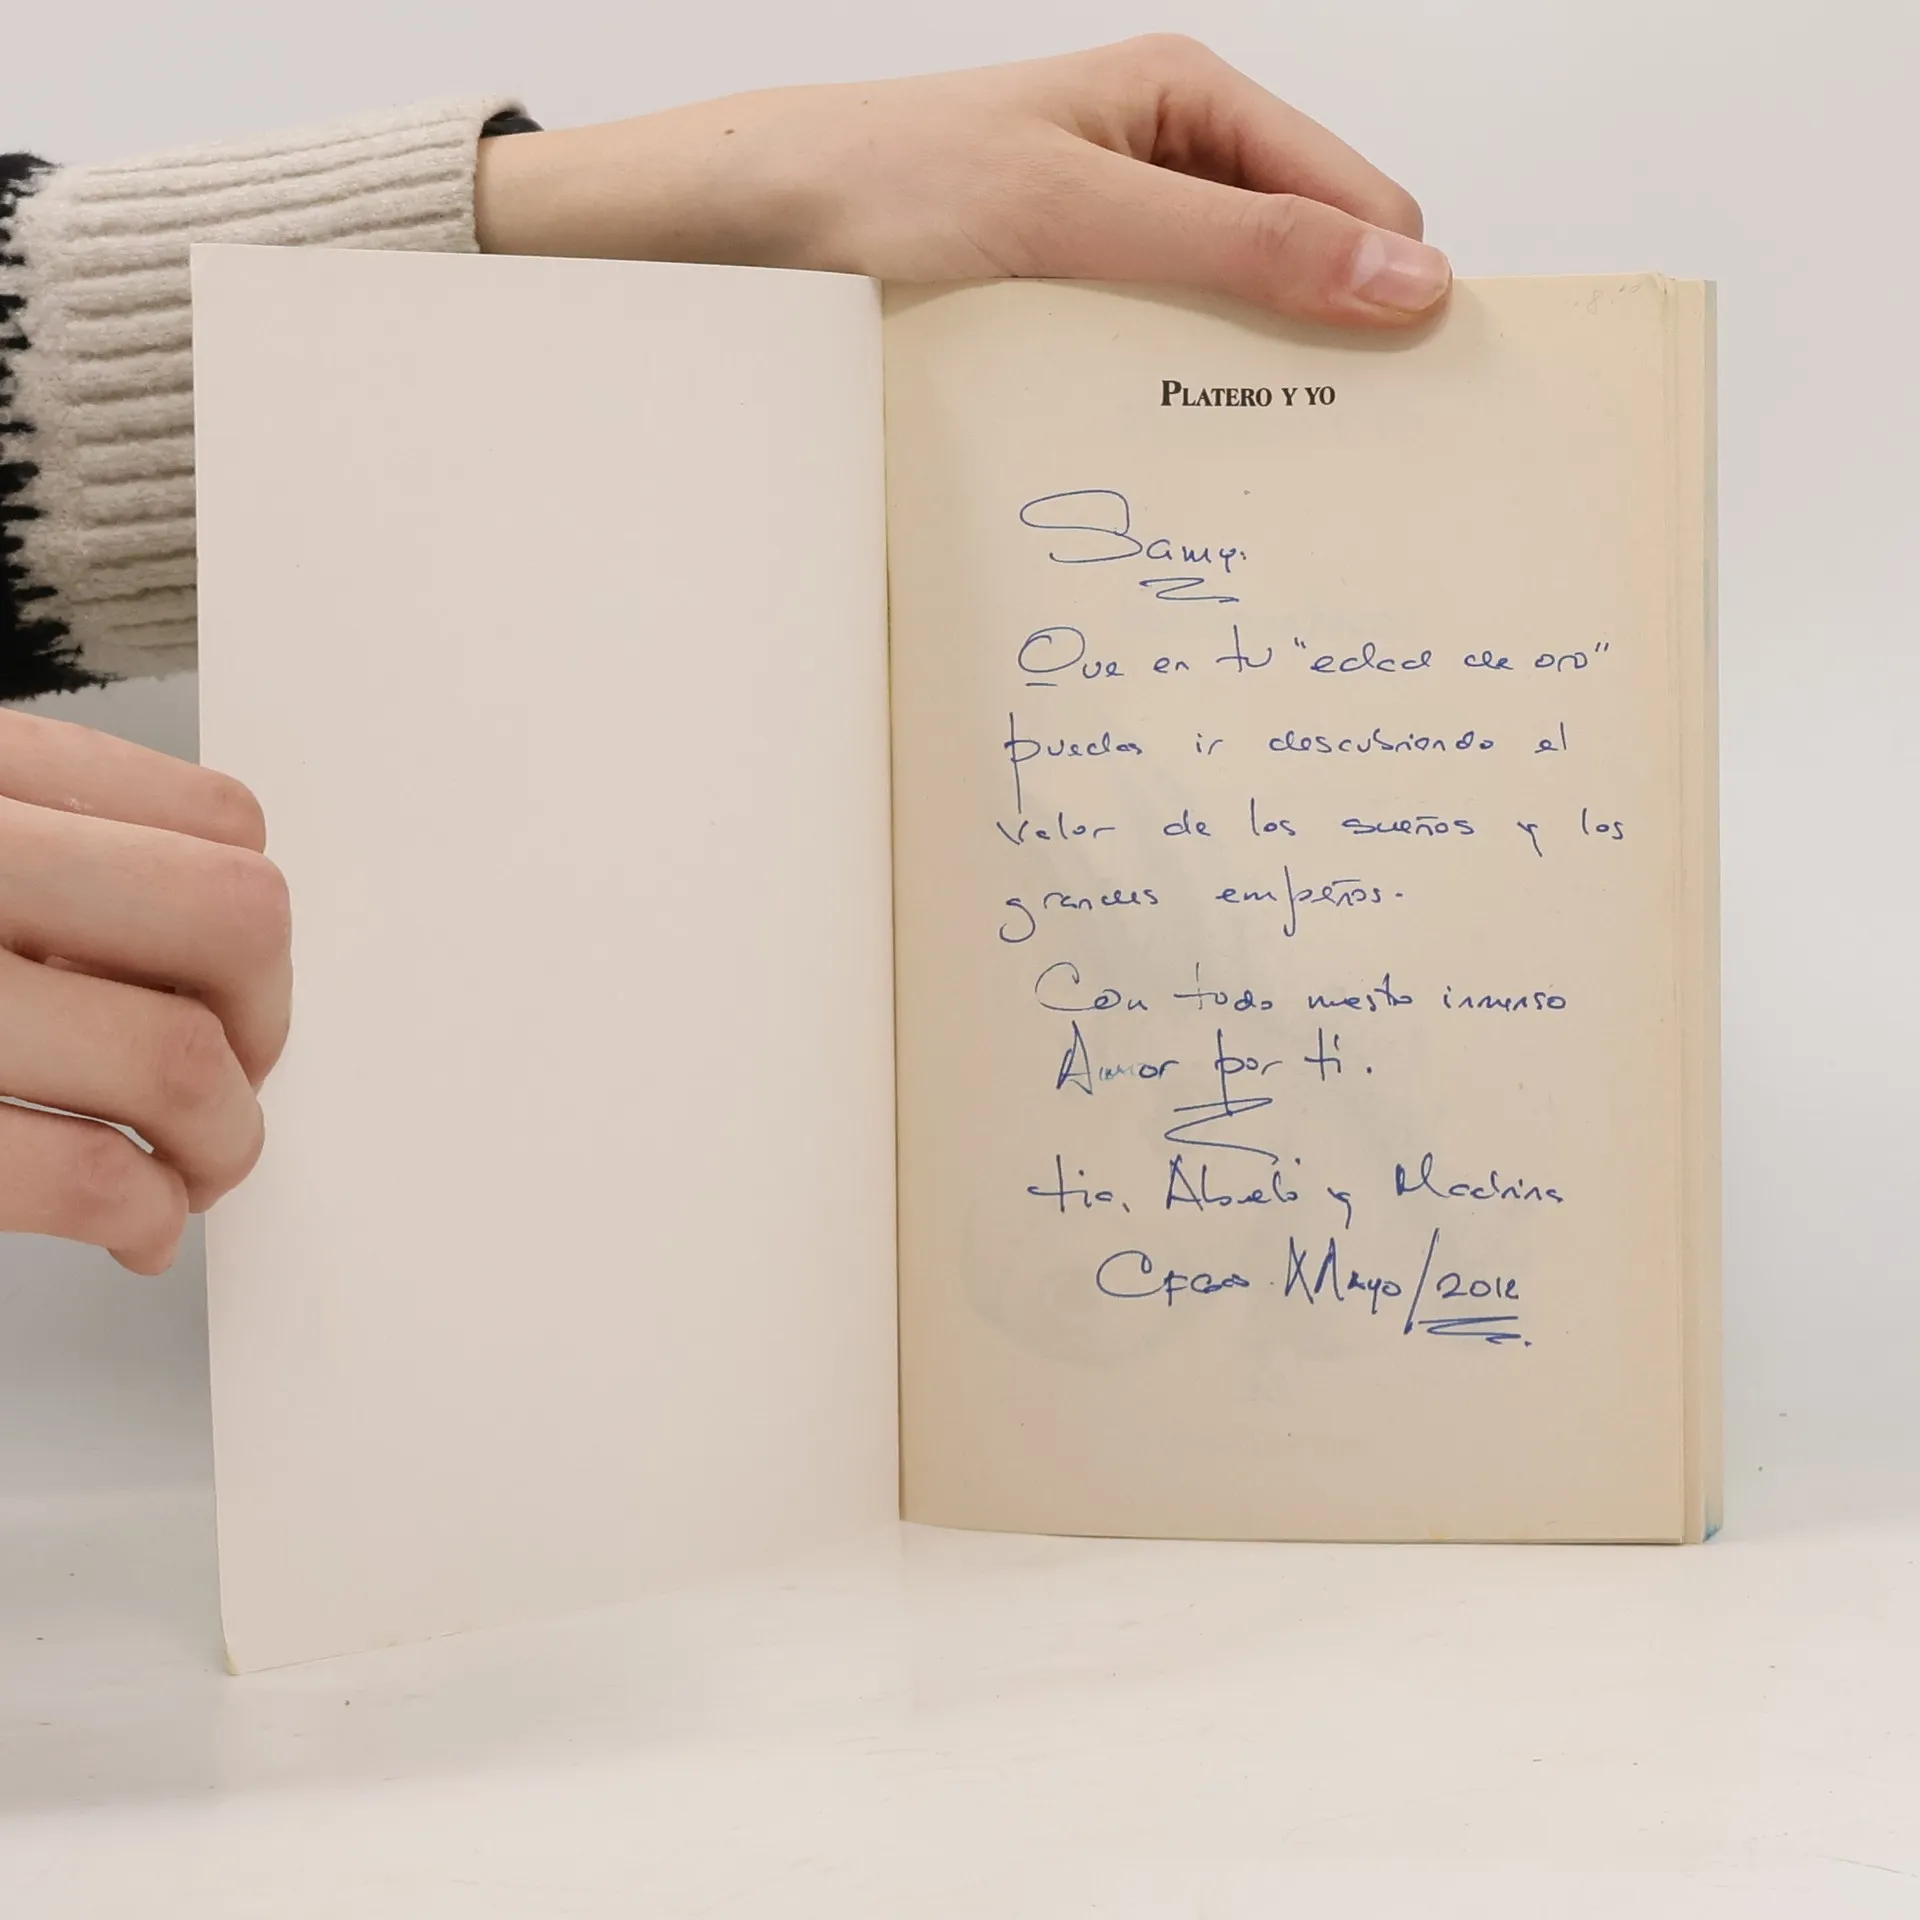 PLATERO Y YO
Samy.
Que en tu "edad de oro"
puedas ir descubriendo el
valor de los sueños y los
grandes empeños.
Con todo nuestro inmenso
Amor por ti.
tia, Abuelo y Madrina
Mayo/2012